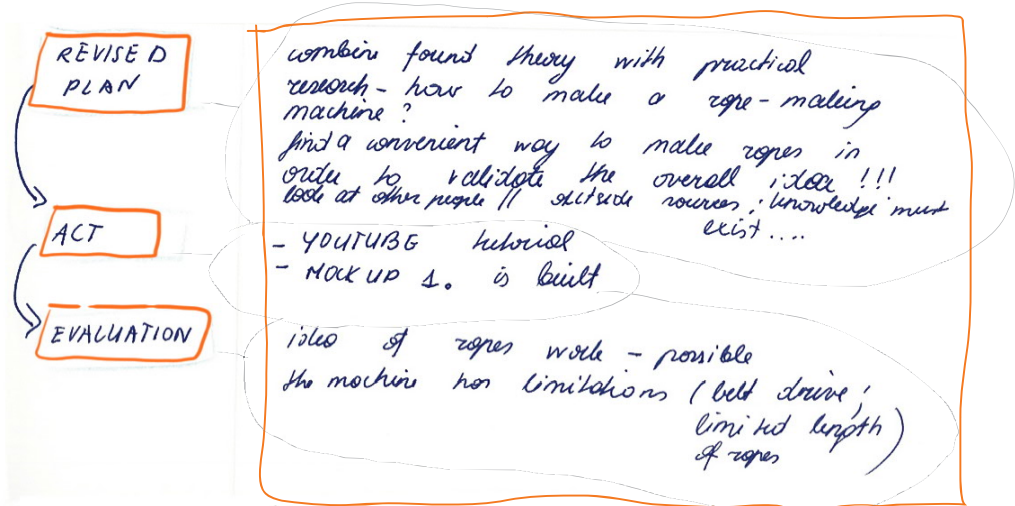 REVISED
PLAN
combine found theory with practical
research - how to make a rope-making
machine?
find a convenient way to make ropes in
order to validate the overall idea !!!
look at other people // outside sources, knowledge must
exist ....
ACT
- YOUTUBE tutorial
- MOCK UP 1. is built
EVALUATION
idea of ropes work - possible
the machine has limitations (belt drive,
limited length)
of ropes